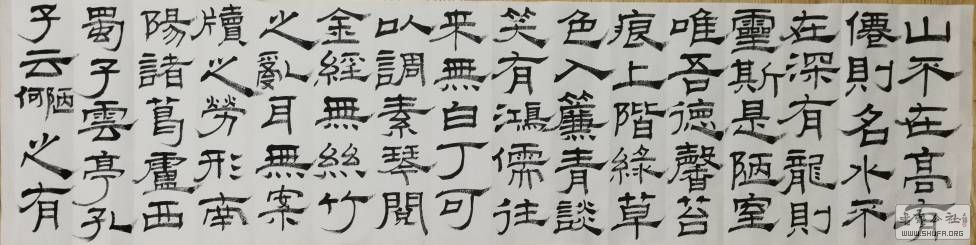 山不在高有
僊則名水不
在深有龍則
靈斯是陋室
唯吾德馨苔
痕上階綠草
色入簾青談
笑有鴻儒往
来無白丁可
以調素琴閱
金經無絲竹
之亂耳無案
牘之勞形南
陽諸葛廬西
蜀子雲亭孔
子云何陋之有
WWW.SHUFA.ORG